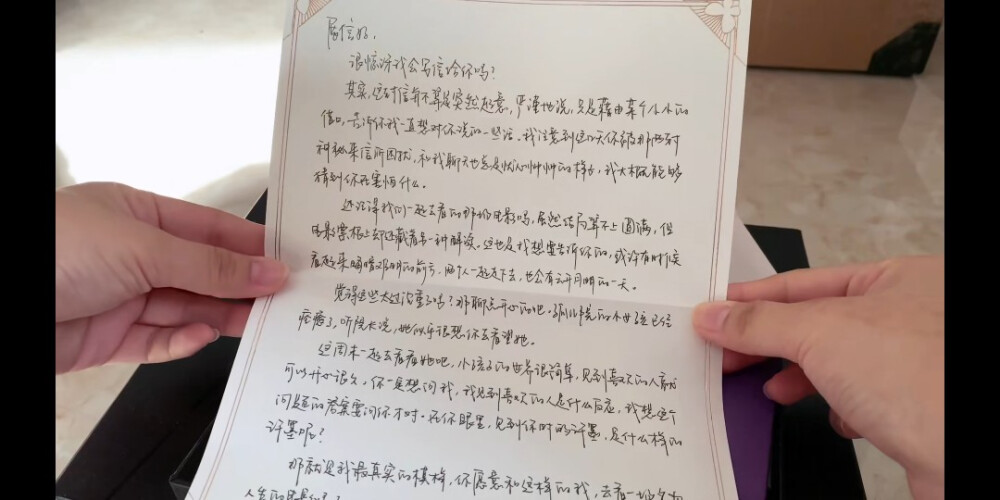 展信好,
很惊讶我会写信给你吗?
其实,这封信并不算是突然起意,严谨地说,只是藉由某个小小的
借口,告诉你我一直想对你说的一些话。我注意到这几天你被那两封
神秘来信所困扰,和我聊天也总是忧心忡忡的样子,我大概能够
猜到你在害怕什么。
还记得我们一起去看的那场电影吗,虽然结局算不上圆满,但
电影票根上却还藏着另一种解读。这也是我想要告诉你的,或许有时候
看起来晦暗不明的前方,两个人一起走下去,也会有云开月明的一天。
觉得这些太过沉重了吗?那聊点开心的吧。孤儿院的小女孩已经
痊愈了,听院长说,她似乎很想你去看望她。
这周末一起去看看她吧,小孩子的世界很简单,见到喜欢的人就
可以开心很久。你一定想问我,我见到喜欢的人是什么反应,我想这个
问题的答案要问你才对。在你眼里,见到你时的许墨,是什么样的
许墨呢?
那就是我最真实的模样,你愿意和这样的我,去看一场名为
人生的电影吗?